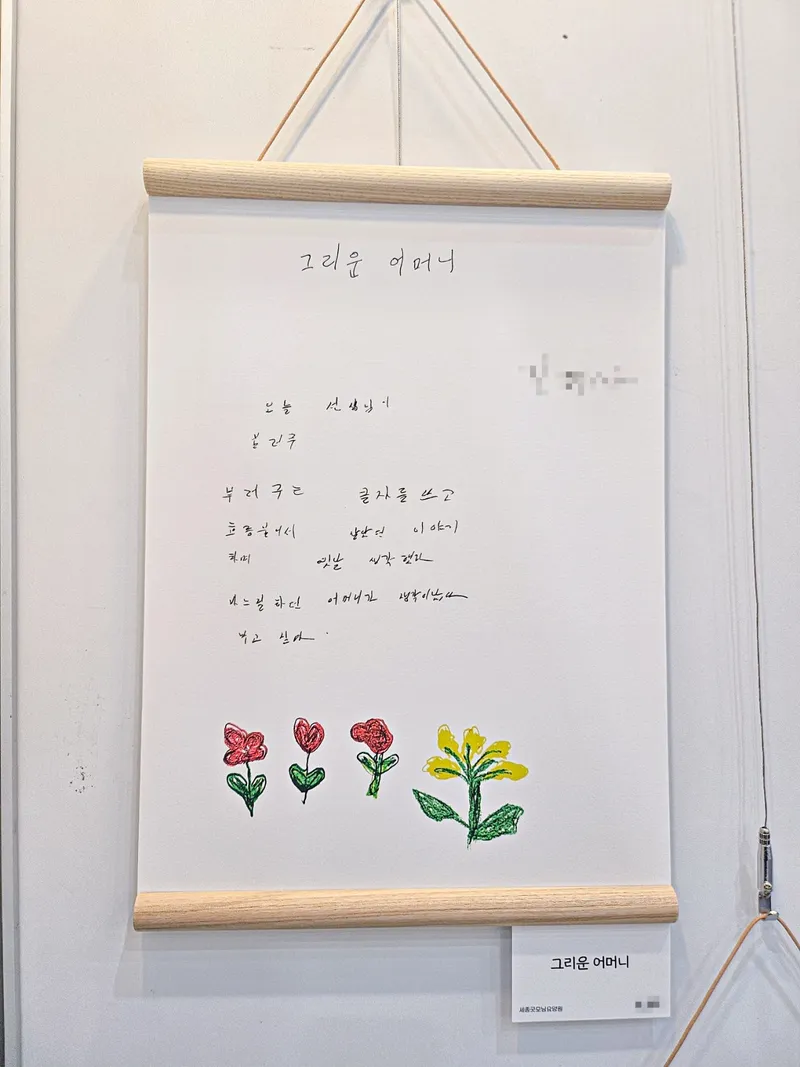 그리운 어머니
오늘 선생님이
불러주
부러주트 글자를 쓰고
호롱불에서 놀았던 이야기
하며 옛날 생각했다
바느질하던 어머니가 생각이났다
보고 싶다
그리운 어머니
세종굿모닝요양원